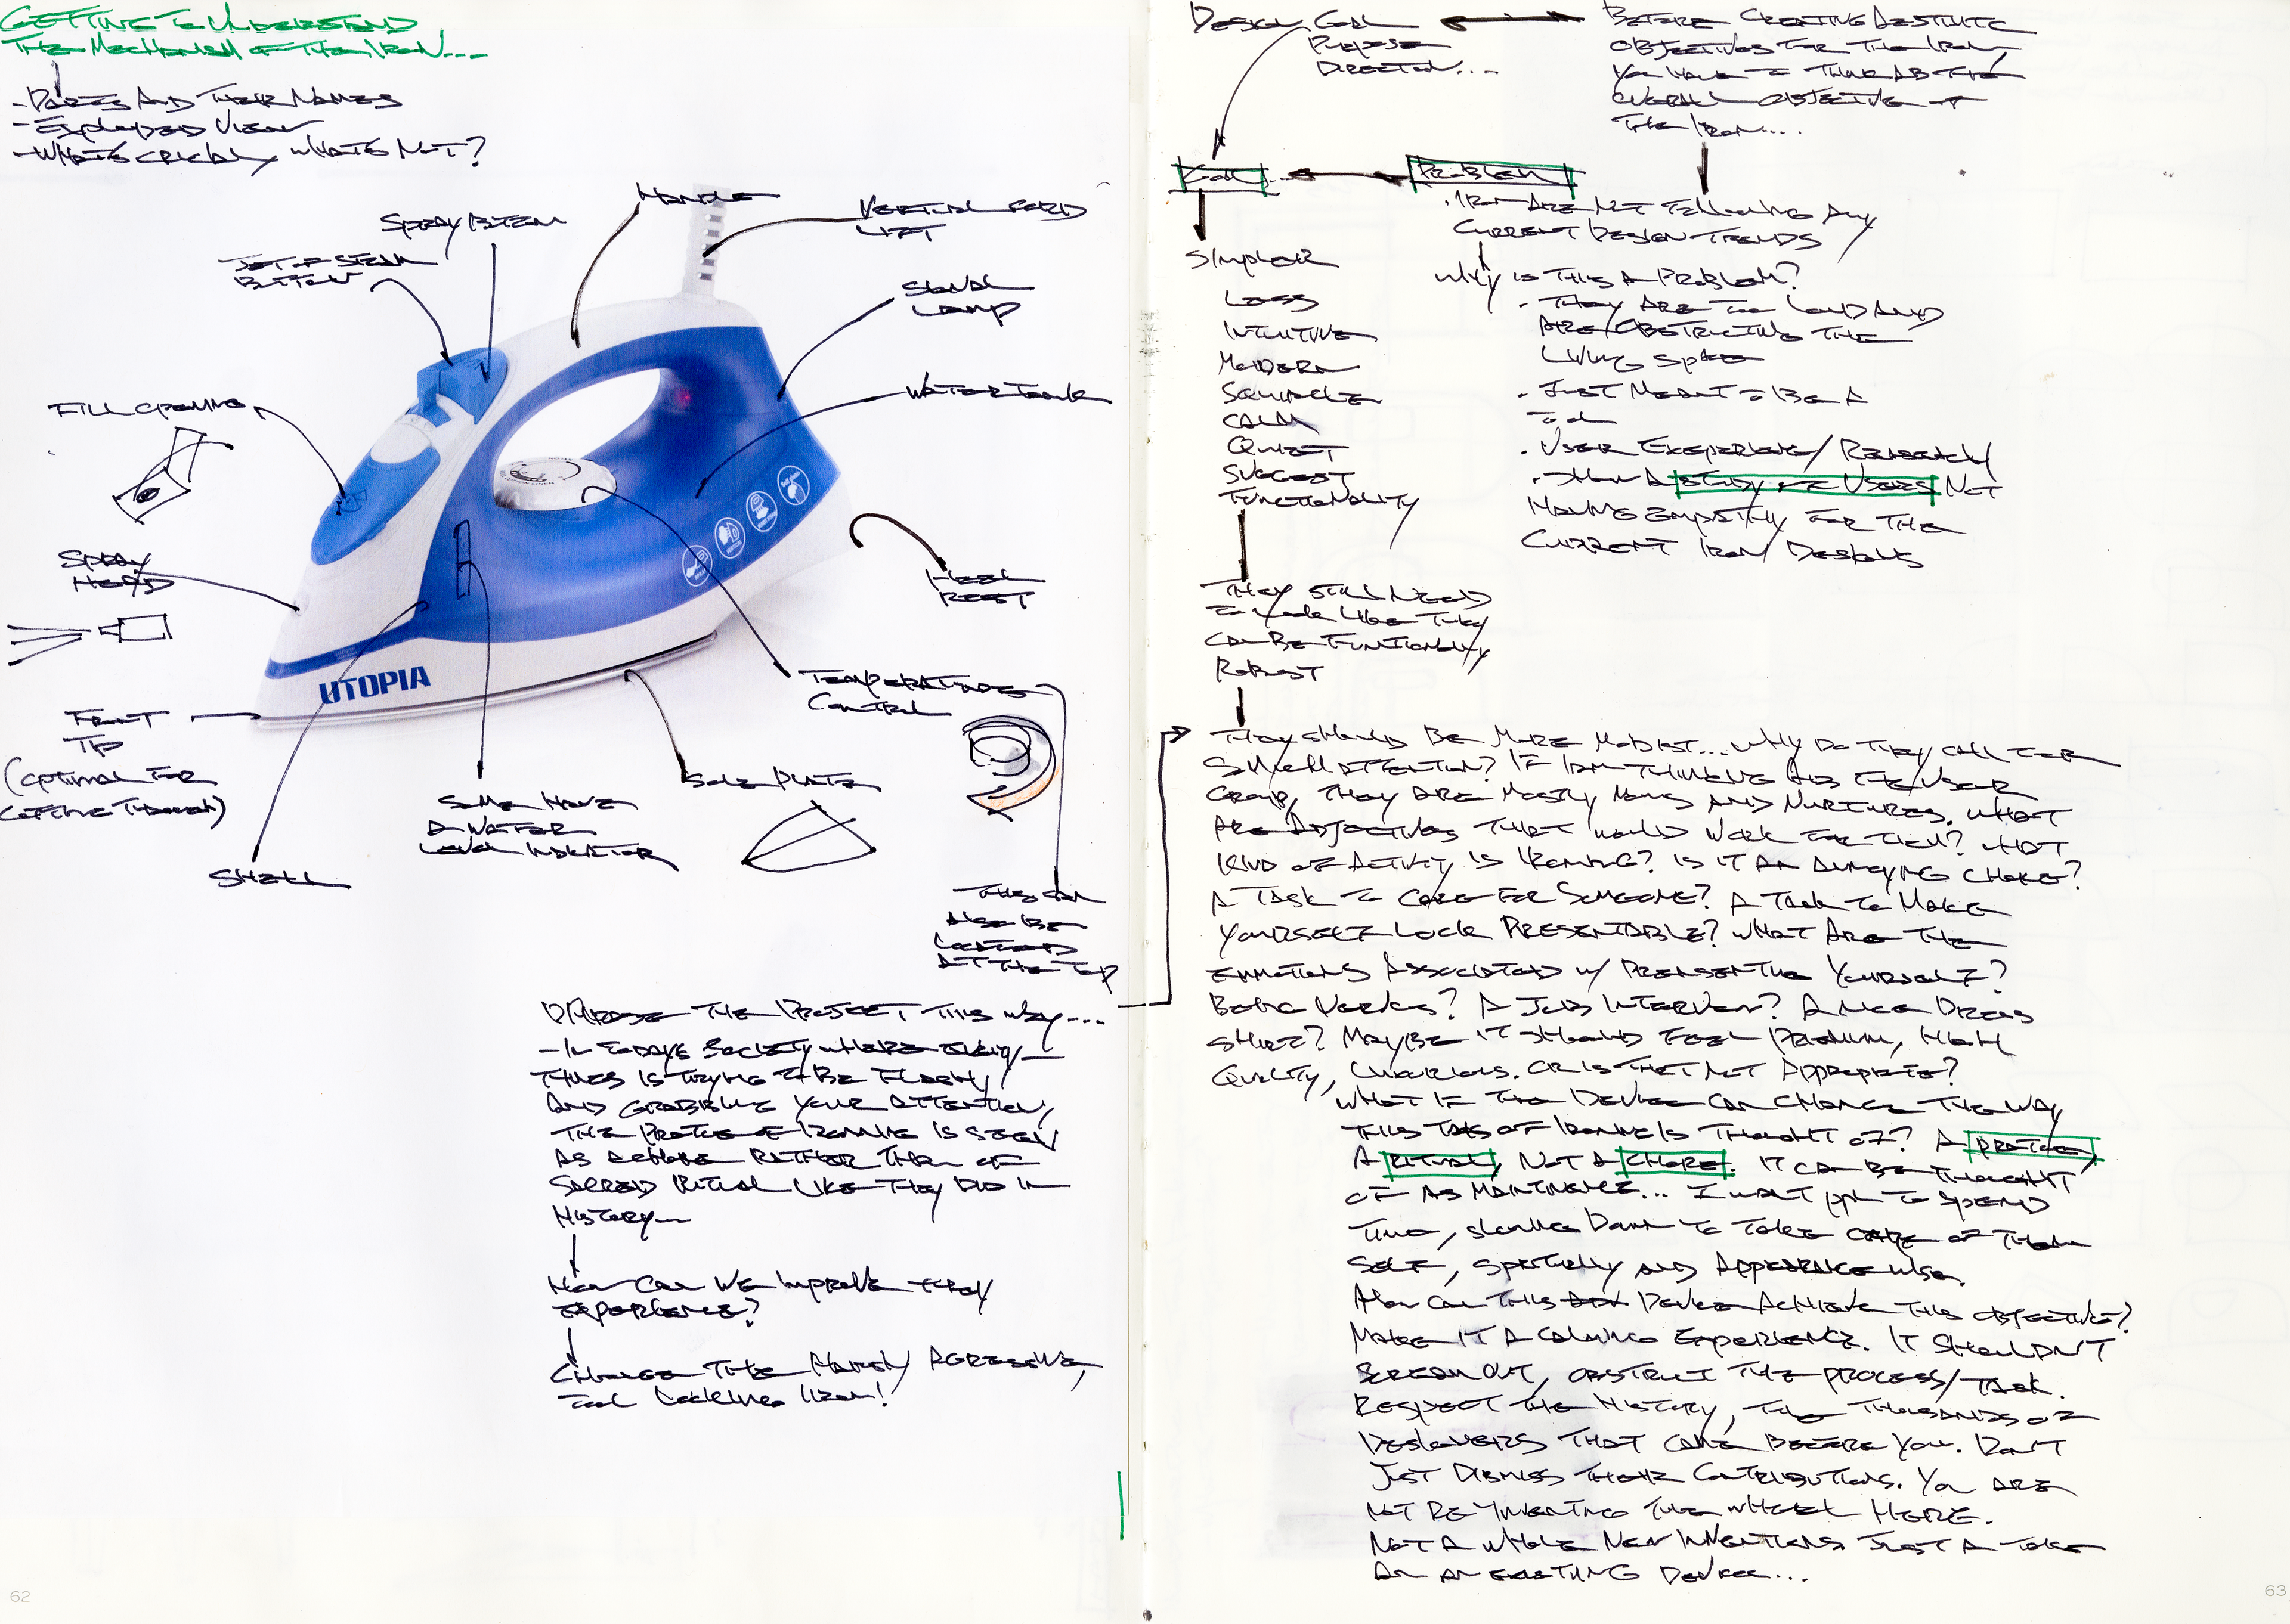 GETTING TO UNDERSTAND
THE MECHANISM OF THE IRON...
- PARTS AND THEIR NAMES
- EXPLODED VIEW
- WHATS CRUCIAL, WHATS NOT?
HANDLE
SPRAY BUTTON
VERTICAL CORD
LIFT
JET OF STEAM
BUTTON
SIGNAL
LAMP
WATER TANK
FILL OPENING
SPRAY
HEAD
HEEL
REST
UTOPIA
TEMPERATURE
CONTROL
FRONT
TIP
(OPTIMAL FOR
GETTING THROUGH)
SOLE PLATE
SOME HAVE
A WATER
LEVEL INDICATOR
SHELL
THIS CAN
ALSO BE
LOCATED
AT THE TOP
THE PROJECT THIS WAY...
- IN TODAYS SOCIETY WHERE EVERY-
THING IS TRYING TO BE FLASHY,
AND GRABBING YOUR ATTENTION,
THE PROCESS OF IRONING IS SEEN
AS A CHORE RATHER THAN OF
SACRED RITUAL LIKE THEY DID IN
HISTORY...
HOW CAN WE IMPROVE THEIR
EXPERIENCE?
CHANGE THE HARSH, AGRESSIVE,
TOOL LOOKING IRON!
62
DESIGN GOAL
PURPOSE
DIRECTION...
BEFORE CREATING AESTHETIC
OBJECTIVES FOR THE IRON,
YOU HAVE TO THINK AB THE
OVERALL OBJECTIVE OF
THE IRON....
GOAL
PROBLEM
. IRON ARE NOT FOLLOWING ANY
CURRENT DESIGN TRENDS
WHY IS THIS A PROBLEM?
. THEY ARE TOO LOUD AND
ARE OBSTRUCTING THE
LIVING SPACE
. JUST MEANT TO BE A
TOOL
. USER EXPERIENCE / RESEARCH
. SHOW A STUDY OF USERS NOT
HAVING EMPATHY FOR THE
CURRENT IRON DESIGNS
SIMPLER
LESS
INTUITIVE
MODERN
SQUIRCLE
CALM
QUIET
SUGGEST
FUNCTIONALITY
THEY STILL NEED
TO LOOK LIKE THEY
CAN BE FUNCTIONALLY
ROBUST
THEY SHOULD BE MORE MODEST... WHY DO THEY CALL FOR
SO MUCH ATTENTION? IF I AM THINKING AB THE USER
GROUP, THEY ARE MOSTLY MOMS AND NURTURES. WHAT
ARE ADJECTIVES THAT WOULD WORK FOR THEM? WHAT
KIND OF ACTIVITY IS IRONING? IS IT AN ANNOYING CHORE?
A TASK TO CARE FOR SOMEONE? A TASK TO MAKE
YOURSELF LOOK PRESENTABLE? WHAT ARE THE
EMOTIONS ASSOCIATED W/ PRESENTING YOURSELF?
BEING NERVOUS? A JOB INTERVIEW? A NICE DRESS
SHIRT? MAYBE IT SHOULD FEEL PREMIUM, HIGH
QUALITY, LUXURIOUS. OR IS THAT NOT APPROPRIATE?
WHAT IF THE DEVICE CAN CHANGE THE WAY
THIS TASK OF IRONING IS THOUGHT OF? A PRACTICE,
A RITUAL, NOT A CHORE. IT CAN BE THOUGHT
OF AS MAINTINENCE... I WANT PPL TO SPEND
TIME, SLOWING DOWN TO TAKE CARE OF THEM
SELF, SPIRTUALLY AND APPEARANCE WISE.
HOW CAN THIS DEVICE ACHIEVE THIS OBJECTIVE?
MAKE IT A CALMING EXPERIENCE. IT SHOULDN'T
SCREAM OUT, OBSTRUCT THE PROCESS/TASK.
RESPECT THE HISTORY, THE THOUSANDS OF
DESIGNERS THAT CAME BEFORE YOU. DON'T
JUST DISMISS THEIR CONTRIBUTIONS. YOU ARE
NOT RE-INVENTING THE WHEEL HERE.
NOT A WHOLE NEW INVENTIONS JUST A TAKE
ON AN EXISTING DEVICE...
63